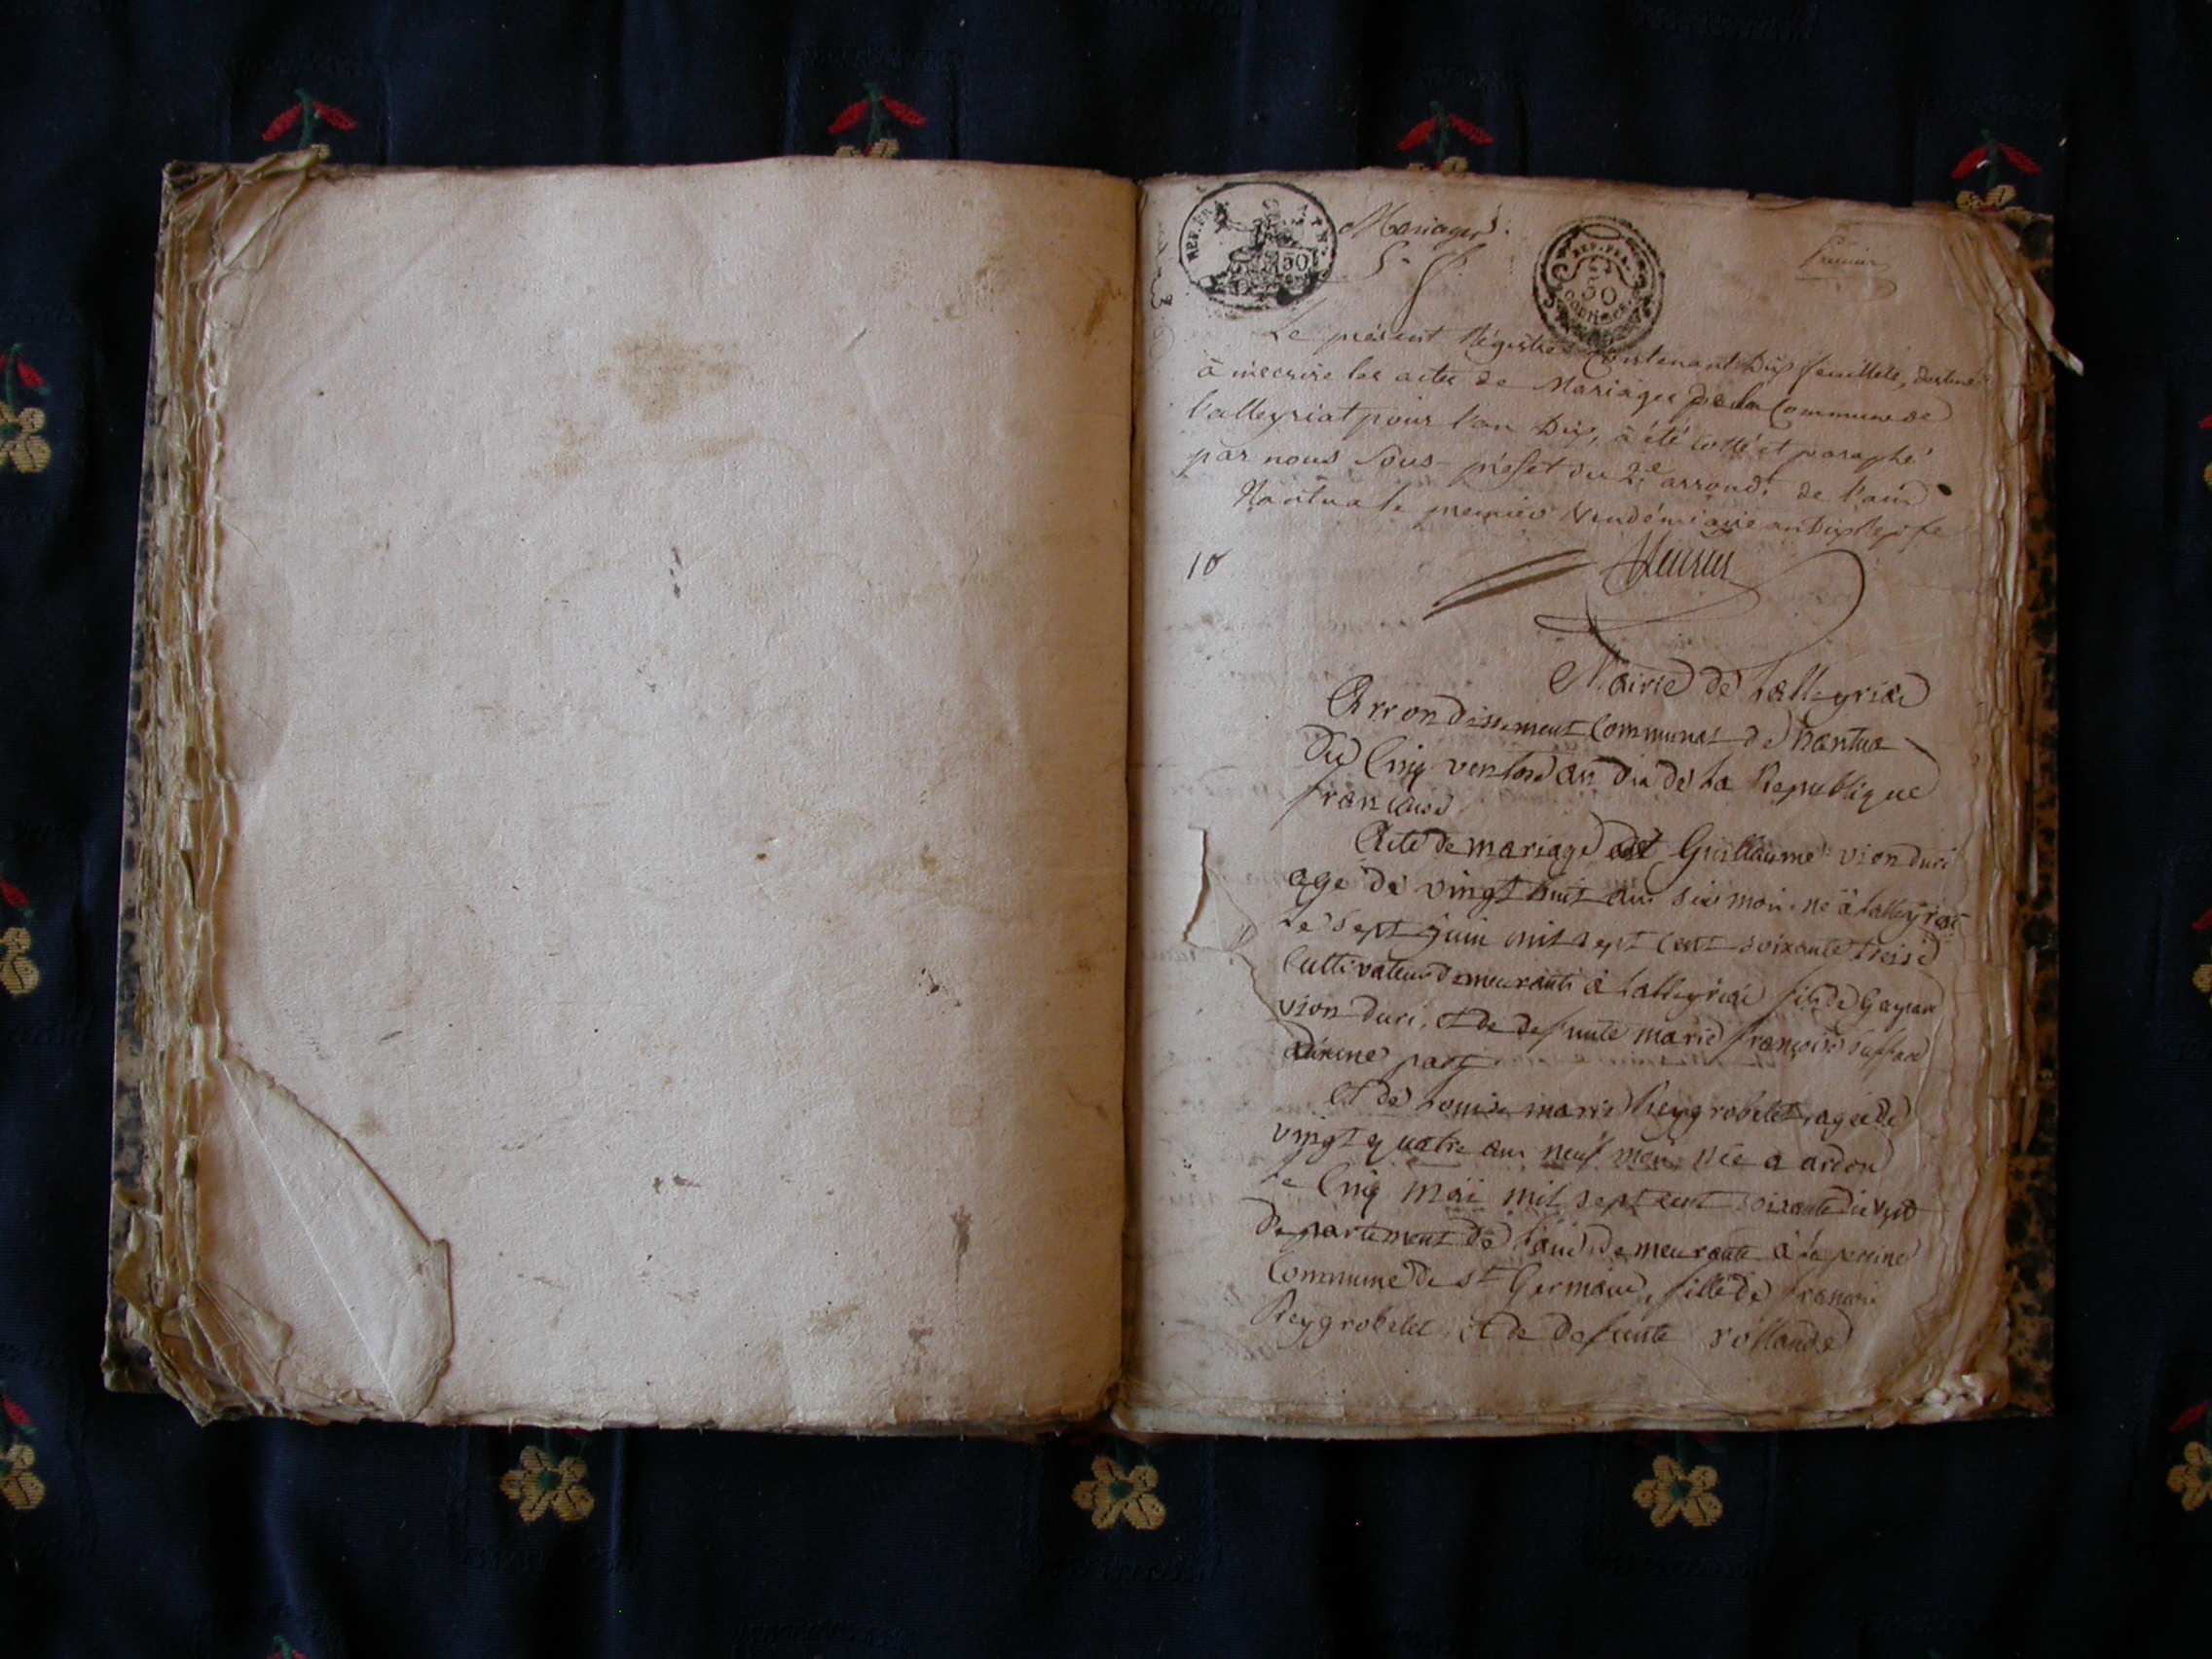 REP. FRA.
50
Mariages.
REP. FRA.
50
CENTIMES
Premier
Le présent Régistre Contenant Dix feuillets, destiné
à inscrire les actes de Mariages de la Commune de
Lalleyriat pour l'an Dix, à été Cotté et paraphé
par nous Sous-préfet du 2e arrondt de l'ain
Nantua le premier Vendémiaire an Dix
10
Mairie de Lalleyriat
Arrondissement Communal de Nantua
Du Cinq ventose an Dix de La Republique
francaise
Acte de mariage de Guillaume vion duri
age de vingt huit ans six mois né à Lalleyriat
Le Sept juin mil sept Cent soixante treise
Cultivateur demeurant à Lalleyriat fils de Gaspard
vion duri, et de defunte marie françoise
d'une part
et de Louise marie Reygrobelet, agée de
vingt quatre ans neuf mois née a ardon
Le Cinq mai mil sept cent soixante dix sept
Departement de L'ain demeurante à
Commune de St Germain, fille de francois
Reygrobelet, et de defunte rollande